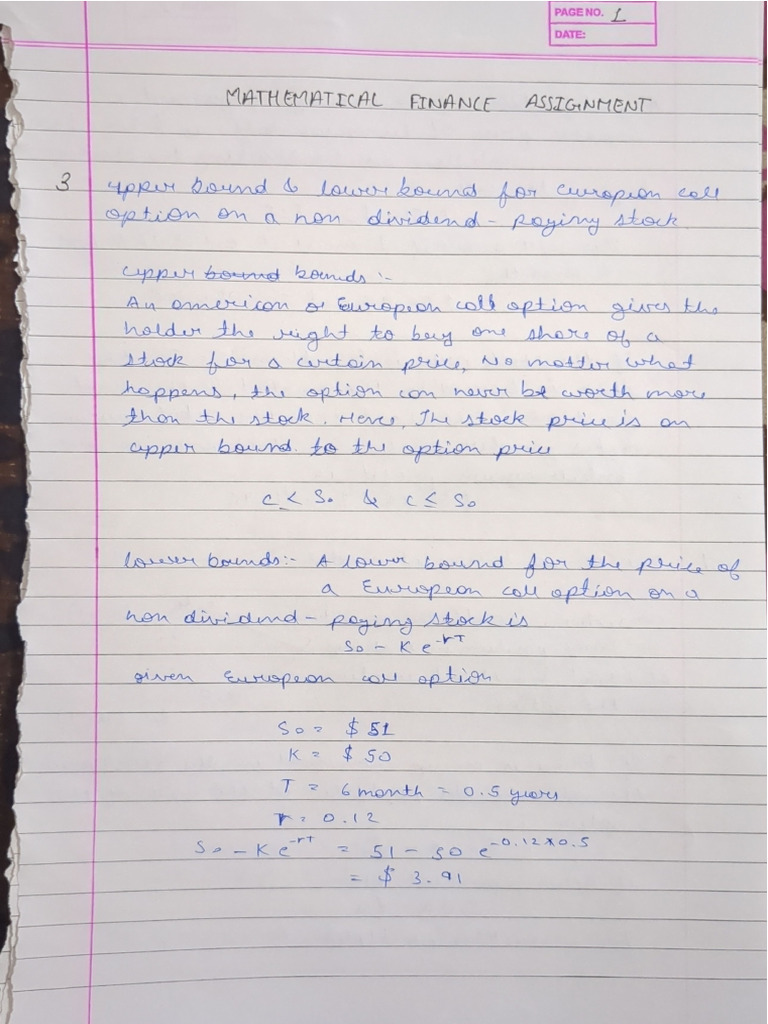 PAGE NO. 1
DATE:
MATHEMATICAL FINANCE ASSIGNMENT
3 upper bound & lower bound for european call
option on a non dividend - paying stock
upper bound bounds :-
An american or European call option gives the
holder the right to buy one share of a
stock for a certain price, No matter what
happens, the option can never be worth more
than the stock. Hence, The stock price is an
upper bound to the option price
c < S₀ & c ≤ S₀
lower bounds:- A lower bound for the price of
a European call option on a
non dividend - paying stock is
S₀ - K e^-rT
given European call option
S₀ = $ 51
K = $ 50
T = 6 month = 0.5 years
r = 0.12
S₀ - K e^-rT = 51 - 50 e^-0.12×0.5
= $ 3.91